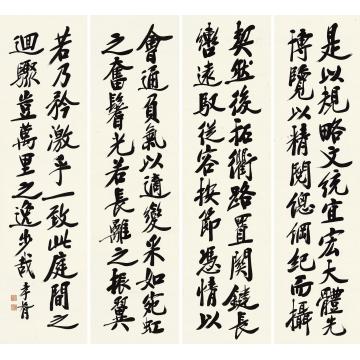 是以規略文統宜宏大體先
博覽以精閱總綱紀而攝
契然後拓衢路置關鍵長
轡遠馭從容按節憑情以
會通負氣以適變采如宛虹
之奮鬐光若長離之振翼
若乃矜激乎一致此庭間之
迴驟豈萬里之逸步哉 孝胥